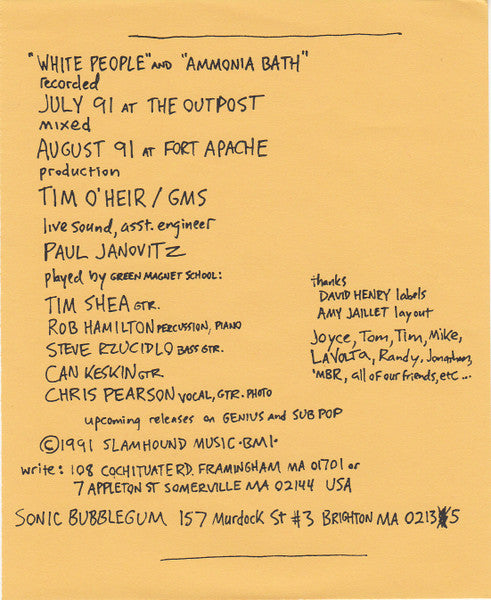 "WHITE PEOPLE" AND "AMMONIA BATH"
recorded
JULY 91 AT THE OUTPOST
mixed
AUGUST 91 AT FORT APACHE
production
TIM O'HEIR / GMS
live sound, asst. engineer
PAUL JANOVITZ
played by GREEN MAGNET SCHOOL:
TIM SHEA GTR.
ROB HAMILTON PERCUSSION, PIANO
STEVE RZUCIDLO BASS GTR.
CAN KESKIN GTR.
CHRIS PEARSON VOCAL, GTR. PHOTO
thanks
DAVID HENRY labels
AMY JAILLET layout
Joyce, Tom, Tim, Mike,
LAVOLTA, Randy, Jonathan,
'MBR, all of our friends, etc...
upcoming releases on GENIUS and SUB POP
©1991 SLAMHOUND MUSIC·BMI·
write: 108 COCHITUATE RD. FRAMINGHAM MA 01701 or
7 APPLETON ST SOMERVILLE MA 02144 USA
SONIC BUBBLEGUM 157 Murdock St #3 BRIGHTON MA 02135